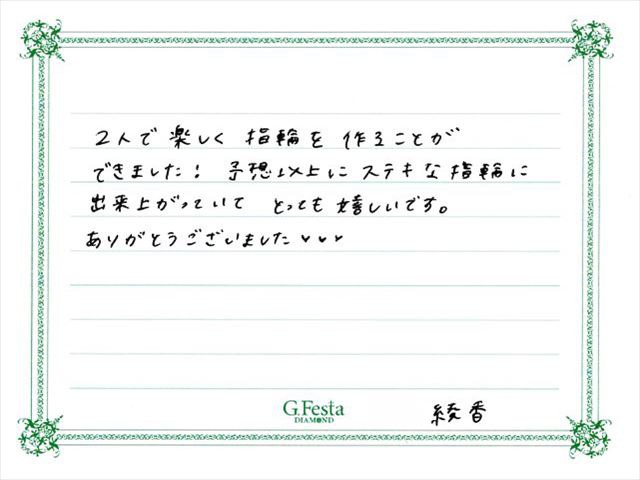 2人で楽しく指輪を作ることが
できました! 予想以上にステキな指輪に
出来上がっていて とっても嬉しいです。
ありがとうございました♥♥♥
G.Festa
DIAMOND
綾香